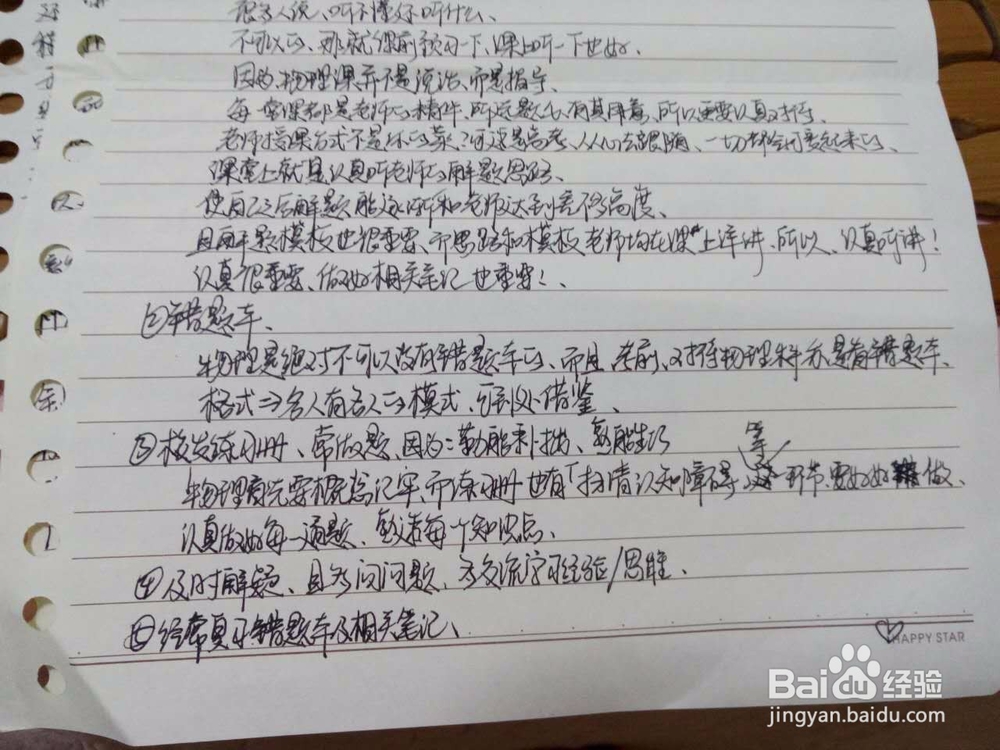 很多人说、听不懂还听什么、
不可以的、那就课前预习一下、课上听一下也好、
因为、物理课并不是说话、而是指导、
每一堂课都是老师的精伴、所选题么、有其用意、所以更要认真对待、
老师授课方式不是你的菜、可这是高考、从心去跟随、一切都会可爱起来的、
课堂上就是认真听老师的解题思路、
使自己之后解题能逐渐和老师达到差不多高度、
且解题模板也很重要、而思路和模板老师均在课上详讲、所以、认真听讲！
认真很重要、做好相关笔记也重要！、
②错题本、
物理是绝对不可以没有错题本的、而且、考前、对待物理科亦是看错题本、
格式⇒各人有各人的模式、可到处借鉴、
③校发练习册、常做题、因为：勤能补拙、熟能生巧
物理首先要概念记牢、而练习册也有「扫清认知障碍」等环节、要好好做、
认真做好每一道题、敲清每个知识点、
④及时解疑、且多问问题、多交流学习经验/思维、
⑤经常复习错题本及相关笔记、
HAPPY STAR
Baidu经验
jingyan.baidu.com